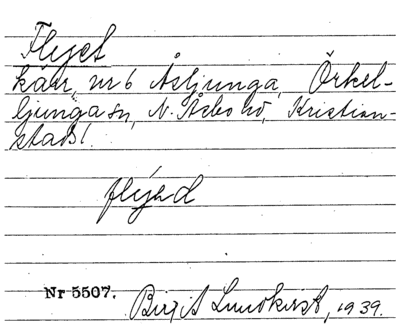 Flyet
kärr, nr 6 Åsljunga, Örkel-
ljunga sn, N. Åsbo hd, Kristian-
stads l.
flýəd
Nr 5507. Birgit Lundkvist, 1939.